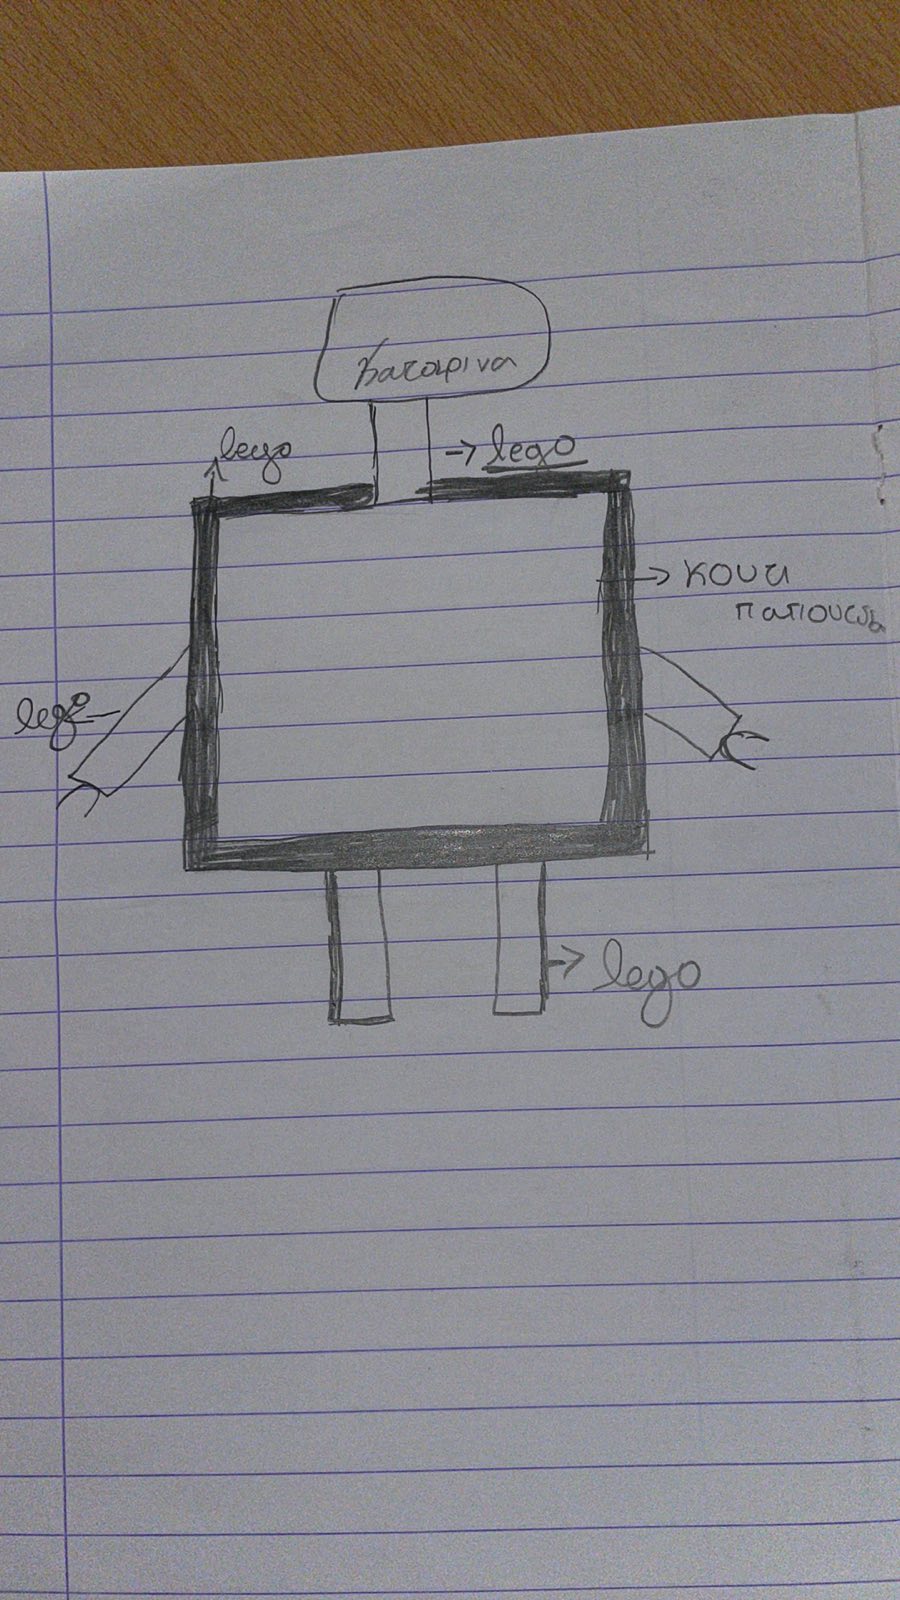 Κατσαρινα
lego
lego
κουτι
παπουτσια
lego
lego